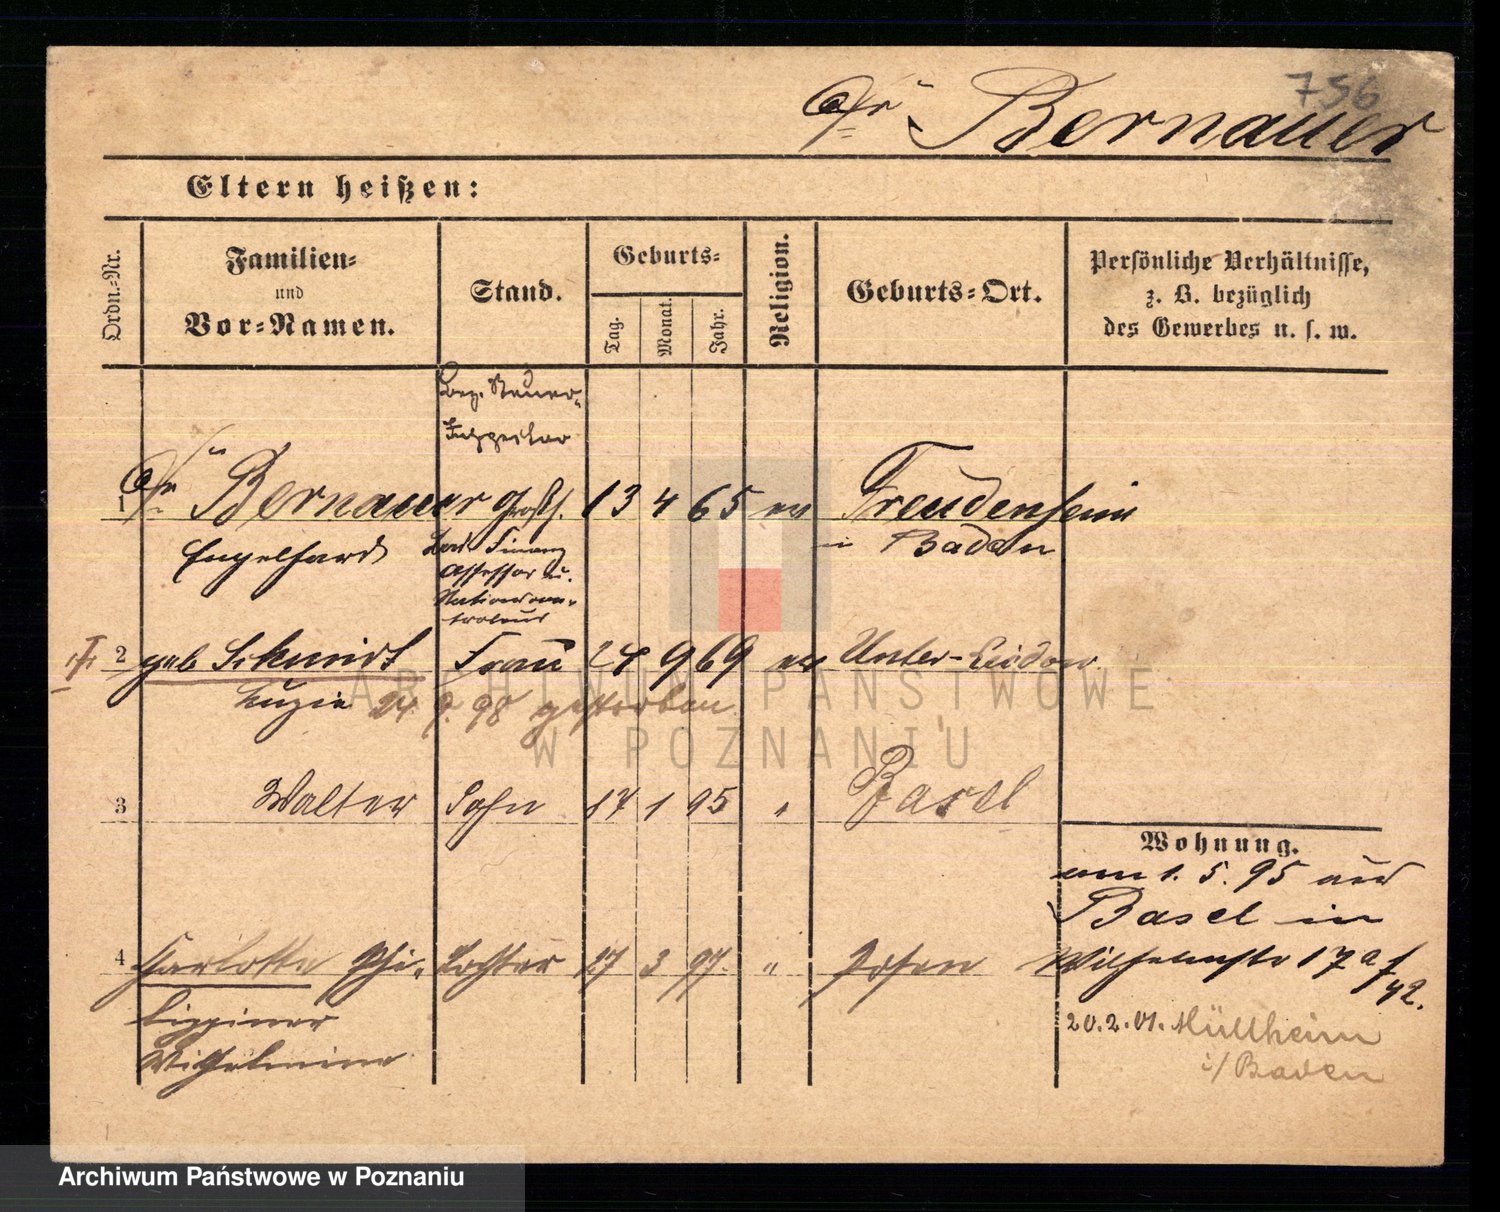 756
Bernauer
Eltern heißen:
Ordn.-Nr.
Familien-
und
Vor-Namen.
Stand.
Geburts-
Tag.
Monat.
Jahr.
Religion.
Geburts-Ort.
Persönliche Verhältnisse,
z. B. bezüglich
des Gewerbes u. s. w.
Bez. Steuer-
Inspektor
1 Bernauer Großh. 13 4 65 ev Freudenheim
Engelhard Bad. Finanz in Baden
Assessor u.
Stationskon-
troleur
2 geb Schmidt Frau 24 9 69 ev Unter-
Luzie 24. 9. 98 gestorben
ARCHIWUM PAŃSTWOWE
W POZNANIU
3 Walter Sohn 17 1 95 " Basel
Wohnung.
am 1. 5. 95 aus
Basel in
4 Charlotte Phi- Tochter 27 3 97. " Posen Wilhelmstr 17a
lippine
Wilhelmine
20. 2. 01. Müllheim
i/ Baden
Archiwum Państwowe w Poznaniu